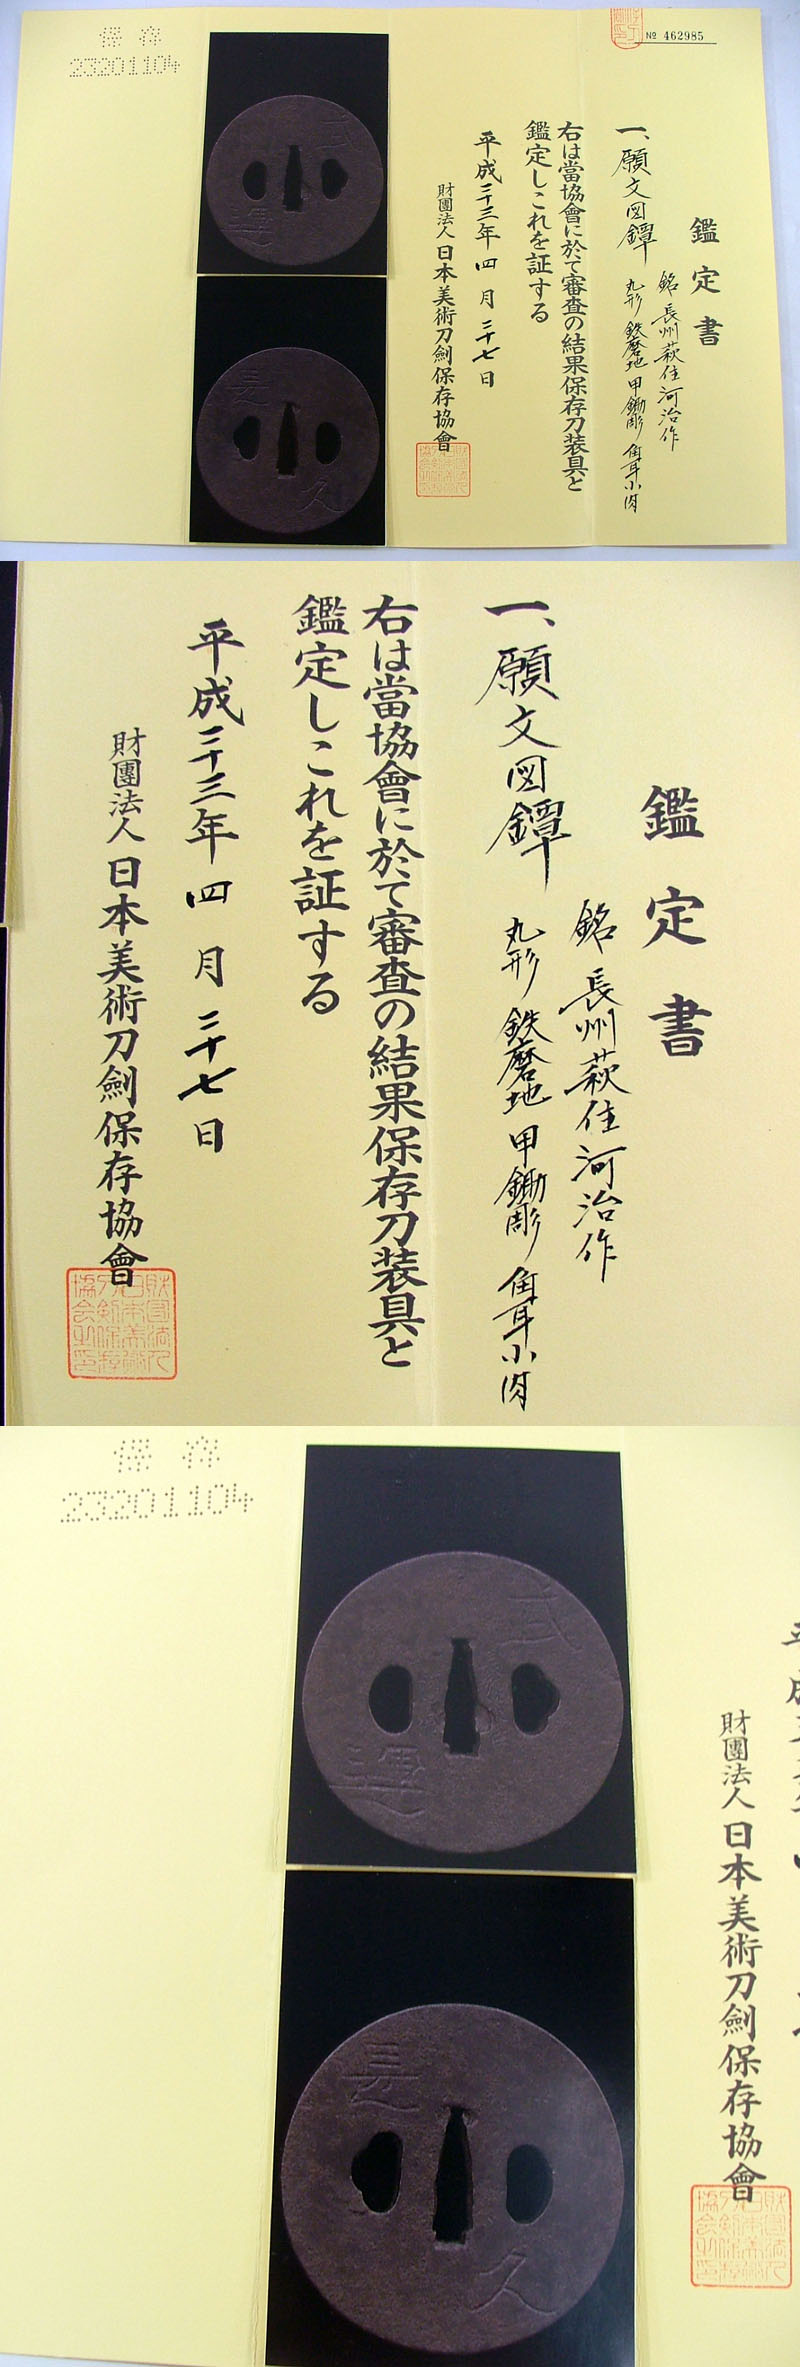 保存
23201104
№ 462985
鑑定書
銘 長州萩住河治作
一、願文図鐔 丸形 鉄磨地 甲鋤彫 角耳小肉
右は當協會に於て審査の結果保存刀装具と
鑑定しこれを証する
平成二十三年 四月 二十七日
財團法人 日本美術刀劍保存協會
武
運
長
久
鑑定書
銘 長州萩住河治作
一、願文図鐔 丸形 鉄磨地 甲鋤彫 角耳小肉
右は當協會に於て審査の結果保存刀装具と
鑑定しこれを証する
平成二十三年 四月 二十七日
財團法人 日本美術刀劍保存協會
保存
23201104
武
運
長
久
財團法人 日本美術刀劍保存協會